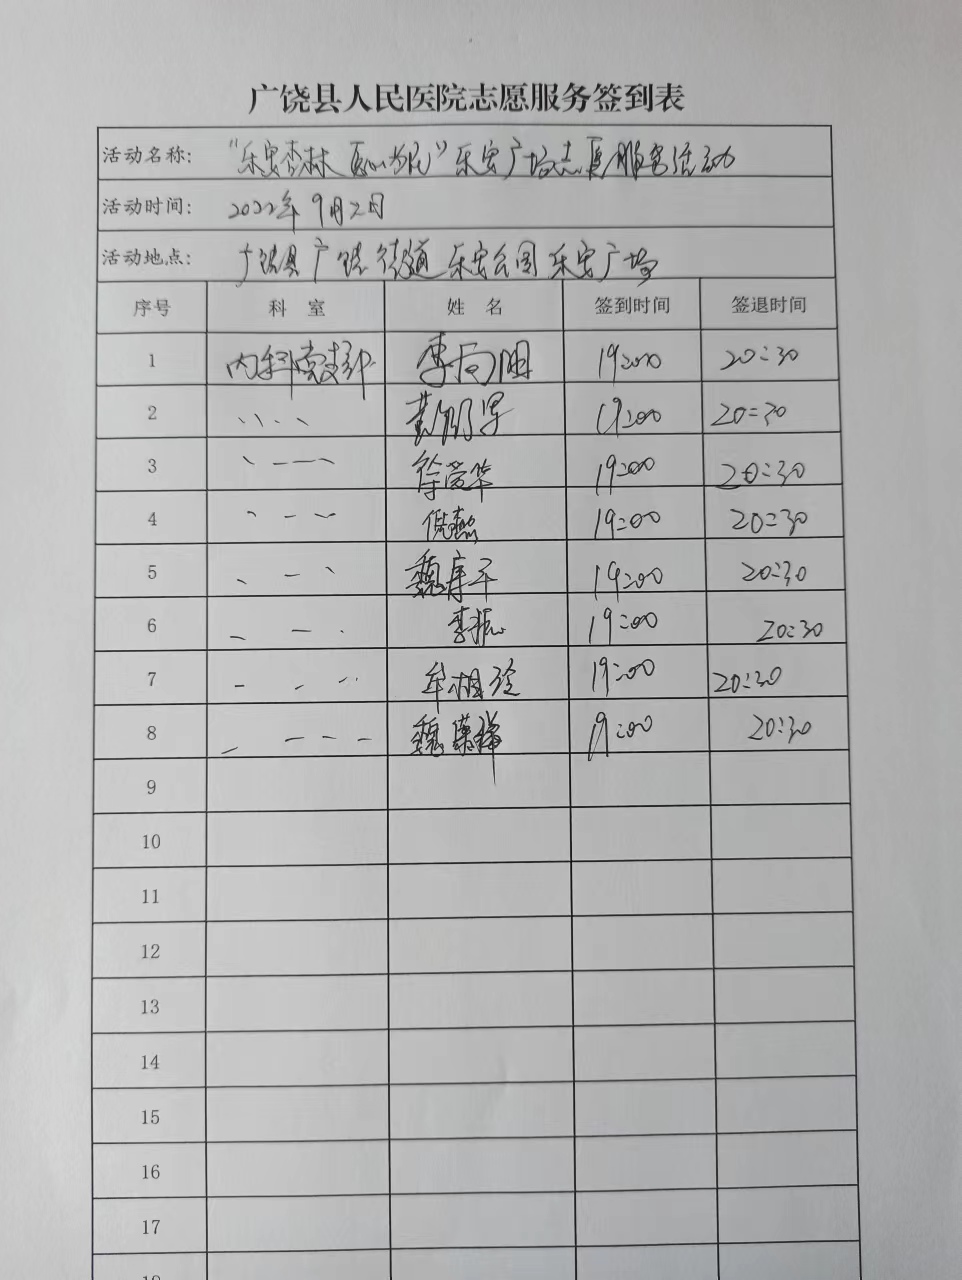 广饶县人民医院志愿服务签到表
活动名称: “乐安杏林 医心为民”乐安广场志愿服务活动
活动时间: 2022年9月2日
活动地点: 广饶县广饶街道乐安公园乐安广场
序号 科 室 姓 名 签到时间 签退时间
1 内科党支部 李向明 19:00 20:30
2 19:00 20:30
3 徐爱华 19:00 20:30
4 倪燕 19:00 20:30
5 19:00 20:30
6 李振 19:00 20:30
7 牟相玲 19:00 20:30
8 19:00 20:30
9
10
11
12
13
14
15
16
17